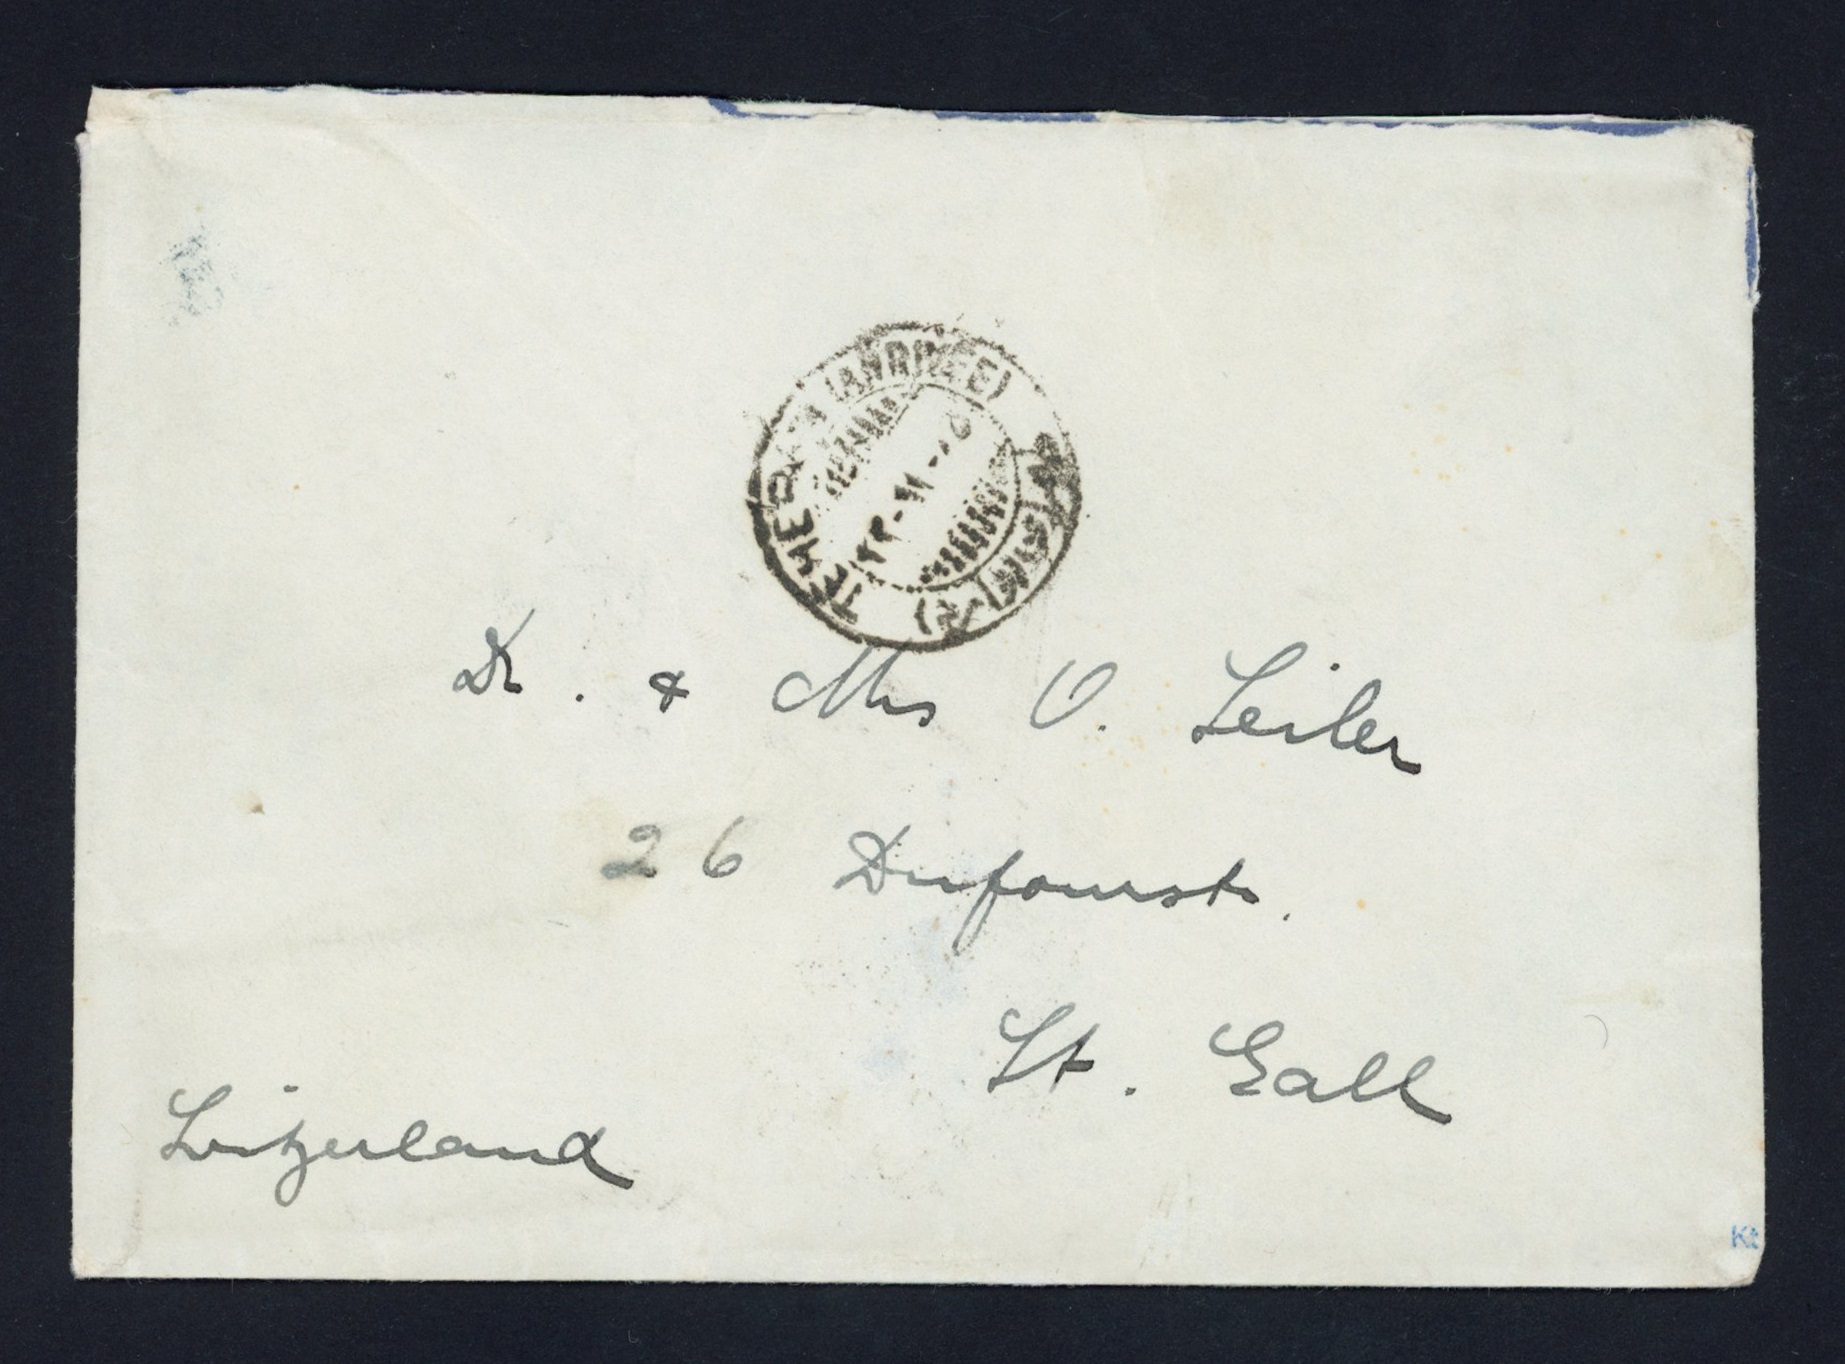 TEHERAN (ARRIVEE)
Dr. & Mrs O. Seiler
26 Dufourstr.
St. Gall
Switzerland
Kt